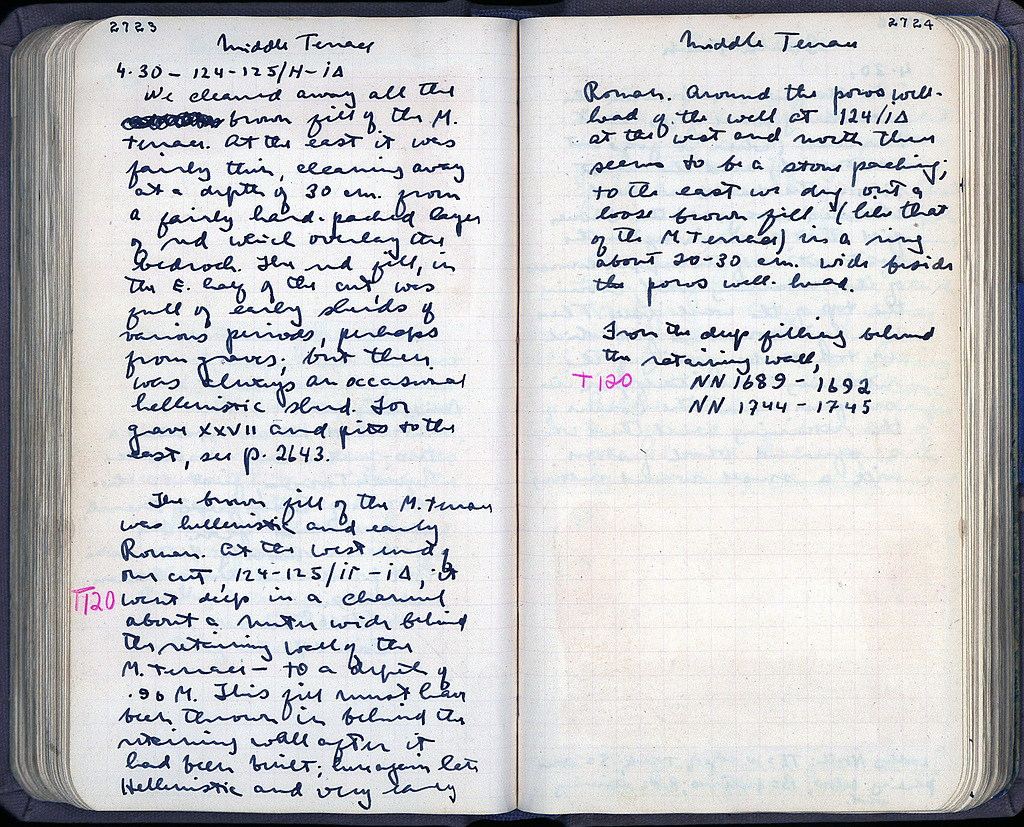 2723
Middle Terrace
4·30 – 124-125/H-iΔ
We cleaned away all the
brown fill of the M.
Terrace. At the east it was
fairly thin, cleaning away
at a depth of 30 cm. from
a fairly hard-packed layer
of red which overlay the
bedrock. The red fill, in
the E. half of the cut was
full of early sherds of
various periods, perhaps
from graves; but there
was always an occasional
hellenistic sherd. For
grave XXVII and pits to the
east, see p. 2643.
The brown fill of the M. Terrace
was hellenistic and early
Roman. At the west end of
our cut, 124-125/iΓ-iΔ, it
T120 went deep in a channel
about a meter wide behind
the retaining wall of the
M. Terrace – to a depth of
.90 M. This fill must have
been thrown in behind the
retaining wall after it
had been built; here again late
Hellenistic and very early
2724
Middle Terrace
Roman. Around the poros well-
head of the well at 124/iΔ
at the west and north there
seems to be a stone packing;
to the east we dug out a
loose brown fill (like that
of the M Terrace) in a ring
about 20-30 cm. wide beside
the poros well-head.
From the deep filling behind
the retaining wall,
T120 NN 1689 – 1692
NN 1744 – 1745